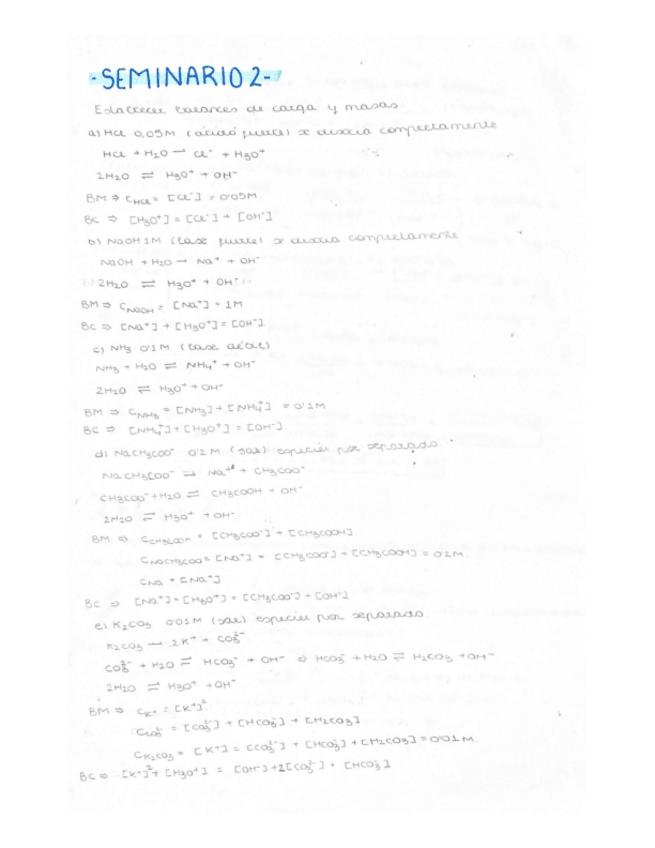 -SEMINARIO 2-
Establecer balances de carga y masas
a) HCl 0,05M (ácido fuerte) se disocia completamente
HCl + H2O → Cl⁻ + H3O⁺
2H2O ⇌ H3O⁺ + OH⁻
BM ⇒ C_HCl = [Cl⁻] = 0'05M
BC ⇒ [H3O⁺] = [Cl⁻] + [OH⁻]
b) NaOH 1M (base fuerte) se disocia completamente
NaOH + H2O → Na⁺ + OH⁻
2H2O ⇌ H3O⁺ + OH⁻
BM ⇒ C_NaOH = [Na⁺] = 1M
BC ⇒ [Na⁺] + [H3O⁺] = [OH⁻]
c) NH3 0'1M (base débil)
NH3 + H2O ⇌ NH4⁺ + OH⁻
2H2O ⇌ H3O⁺ + OH⁻
BM ⇒ C_NH3 = [NH3] + [NH4⁺] = 0'1M
BC ⇒ [NH4⁺] + [H3O⁺] = [OH⁻]
d) NaCH3COO⁻ 0'2M (sal) especies por separado
NaCH3COO⁻ → Na⁺ + CH3COO⁻
CH3COO⁻ + H2O ⇌ CH3COOH + OH⁻
2H2O ⇌ H3O⁺ + OH⁻
BM ⇒ C_CH3COOH = [CH3COO⁻] + [CH3COOH]
C_NaCH3COO = [Na⁺] = [CH3COO⁻] + [CH3COOH] = 0'2M
C_Na = [Na⁺]
BC ⇒ [Na⁺] + [H3O⁺] = [CH3COO⁻] + [OH⁻]
e) K2CO3 0'01M (sal) especies por separado
K2CO3 → 2K⁺ + CO3²⁻
CO3²⁻ + H2O ⇌ HCO3⁻ + OH⁻ ⇒ HCO3⁻ + H2O ⇌ H2CO3 + OH⁻
2H2O ⇌ H3O⁺ + OH⁻
BM ⇒ C_K⁺ = [K⁺]²
C_CO3²⁻ = [CO3²⁻] + [HCO3⁻] + [H2CO3]
C_K2CO3 = [K⁺] = [CO3²⁻] + [HCO3⁻] + [H2CO3] = 0'01M
BC ⇒ [K⁺]² + [H3O⁺] = [OH⁻] + 2[CO3²⁻] + [HCO3⁻]